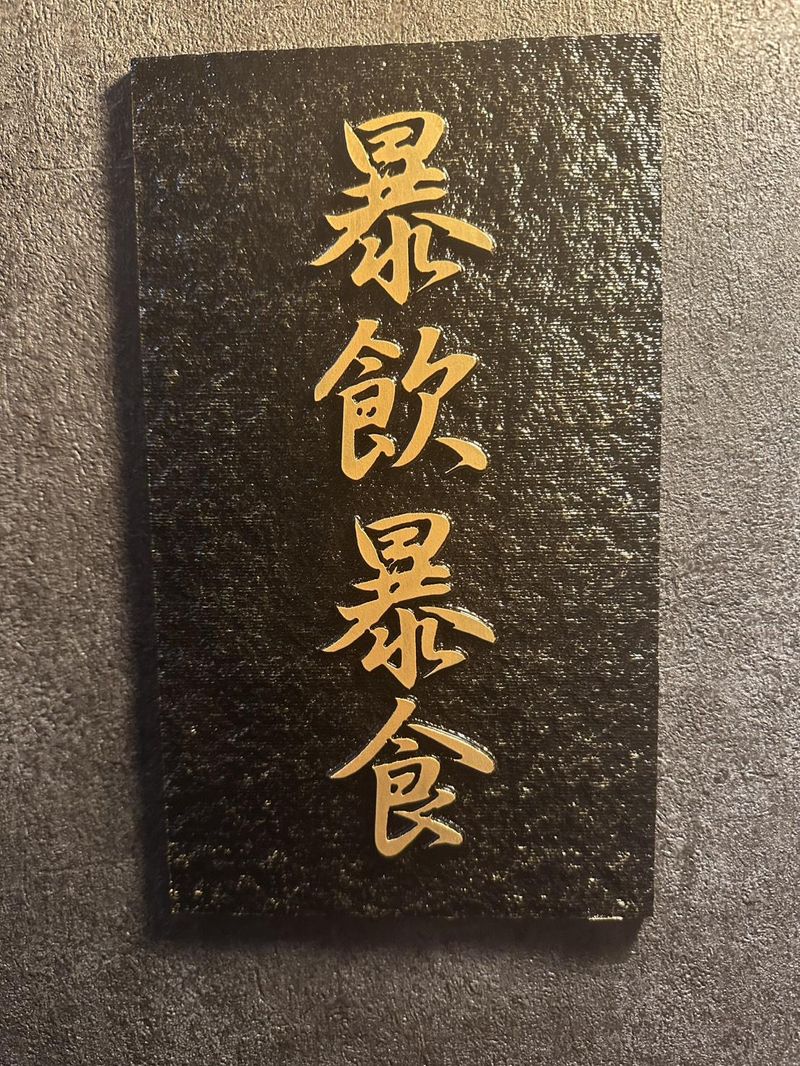 暴飲暴食